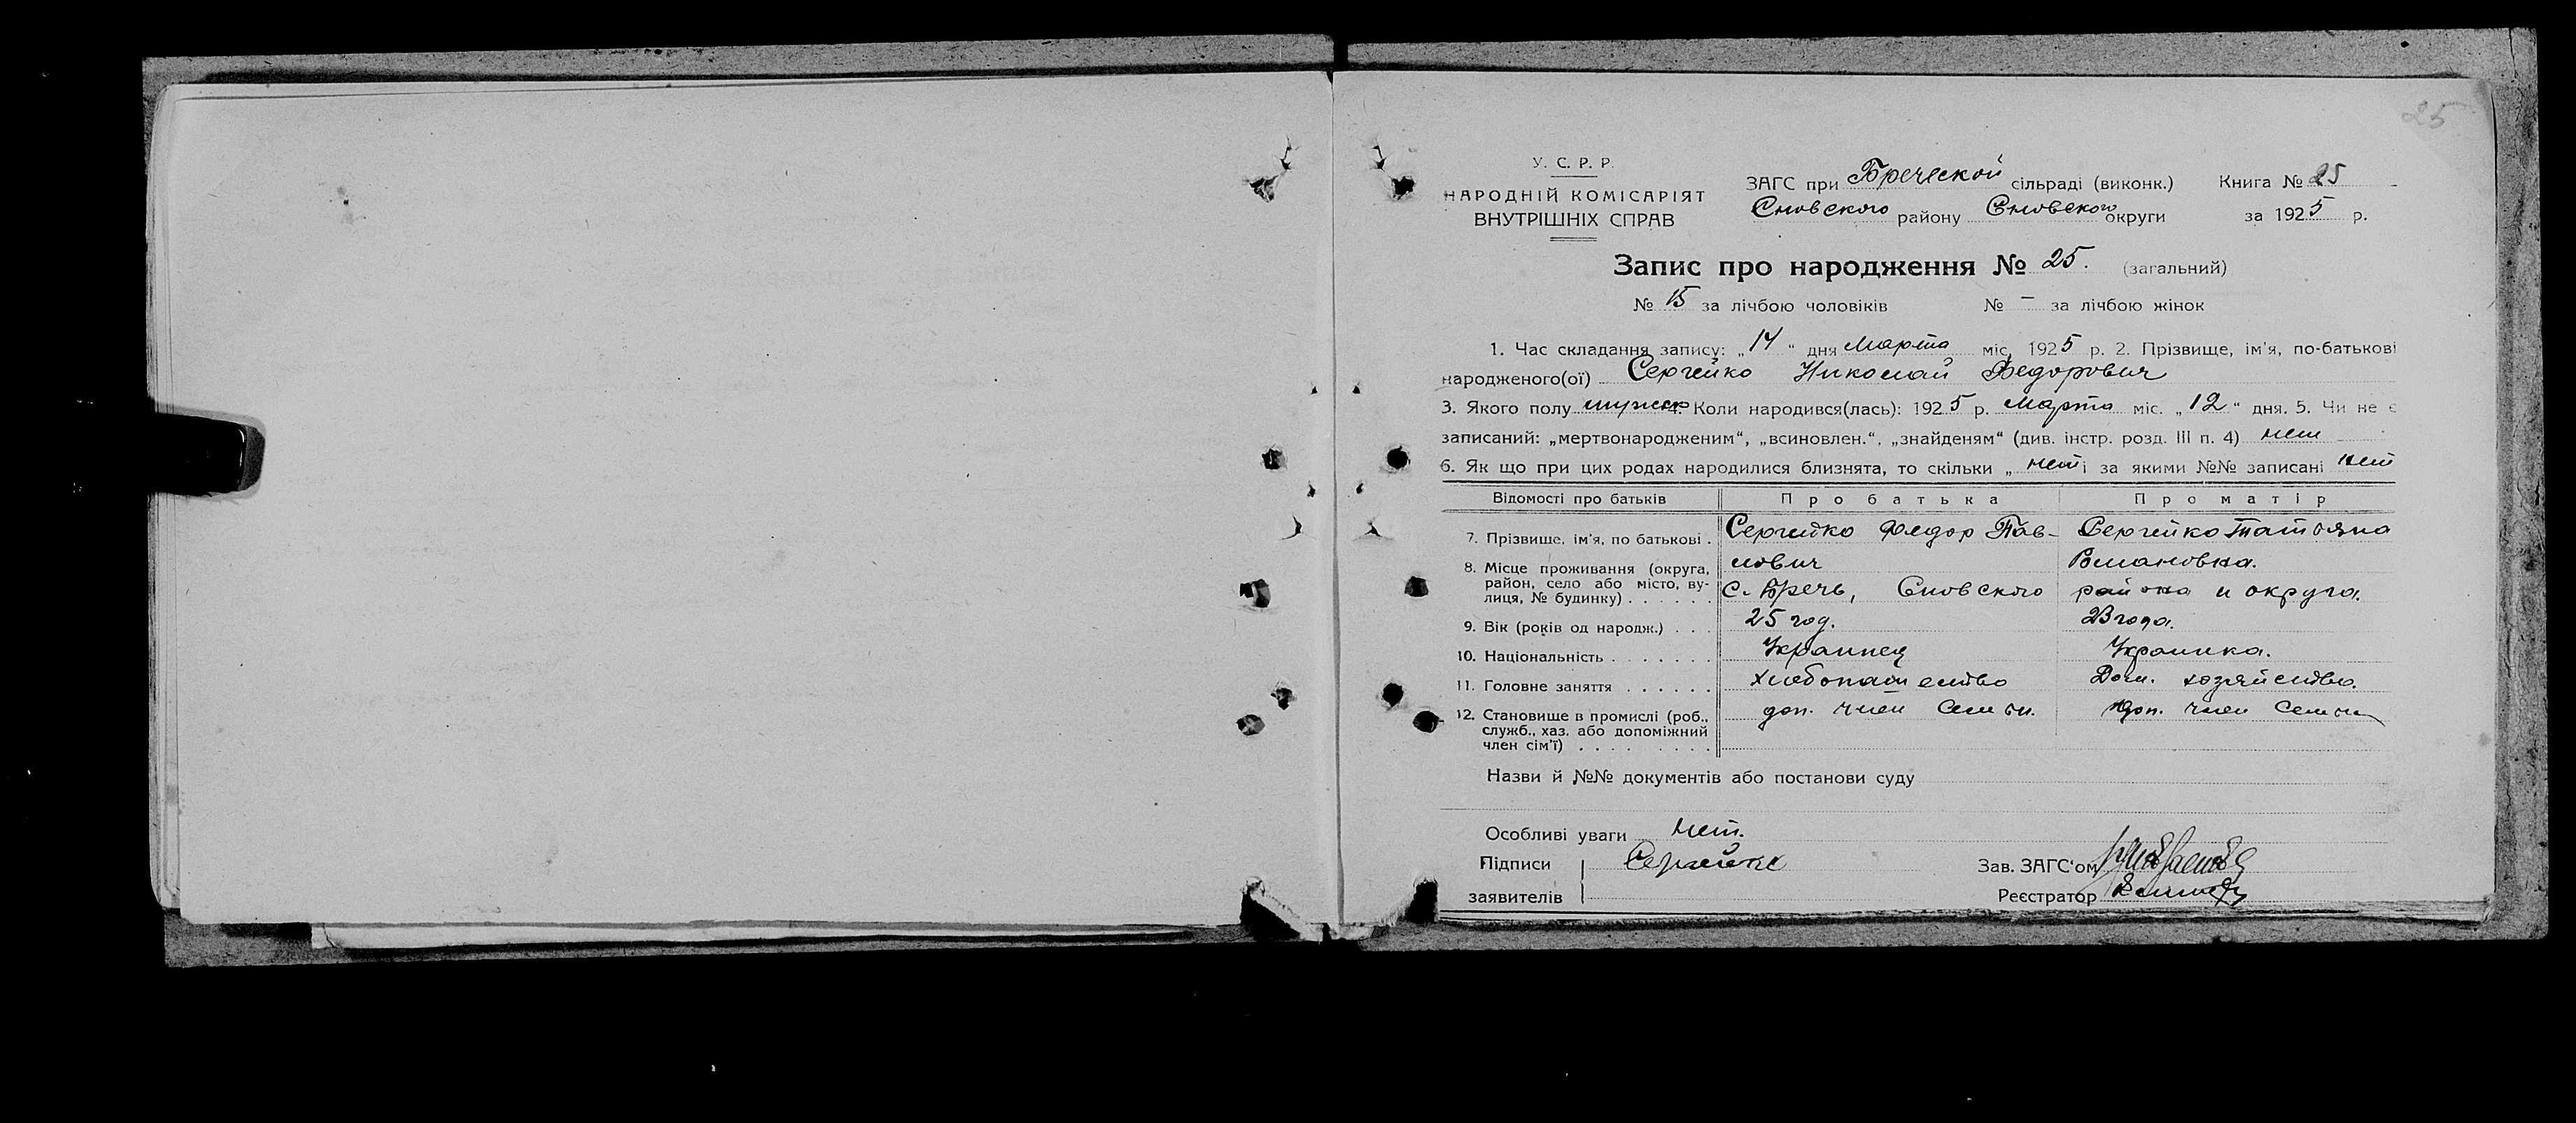 25
У. С. Р. Р.
НАРОДНІЙ КОМІСАРІЯТ
ВНУТРІШНІХ СПРАВ
ЗАГС при Бреческой сільраді (виконк.) Книга № 25
Сновского району Сновского округи за 1925 р.
Запис про народження № 25. (загальний)
№ 15 за лічбою чоловіків № – за лічбою жінок
1. Час складання запису: „14“ дня Марта міс. 1925 р. 2. Прізвище, ім'я, по-батькові
народженого(ої) Сергейко Николай Федорович
3. Якого полу мужск 4. Коли народився(лась): 1925 р. Марта міс. „12“ дня. 5. Чи не є
записаний: „мертвонародженим“, „всиновлен.“, „знайденям“ (див. інстр. розд. III п. 4) нет
6. Як що при цих родах народилися близнята, то скільки „нет і за якими №№ записані нет
Відомості про батьків Про батька Про матір
7. Прізвище, ім'я, по батькові . Сергейко Федор Пав- Сергейко Татьяна
лович
8. Місце проживання (округа,
район, село або місто, ву-
лиця, № будинку) . . . . . . с. Бречь, Сновского района и округа.
9. Вік (років од народж.) . . . 25 год. 23 года.
10. Національність . . . . . . . Украинец Украинка.
11. Головне заняття . . . . . . хлебопашество Дом. хозяйство.
12. Становище в промислі (роб., доп. член семьи. доп. член семьи
служб., хаз. або допоміжний
член сім'ї) . . . . . . . . .
Назви й №№ документів або постанови суду
Особливі уваги нет.
Підписи Сергейко Зав. ЗАГС'ом
заявителів Реєстратор